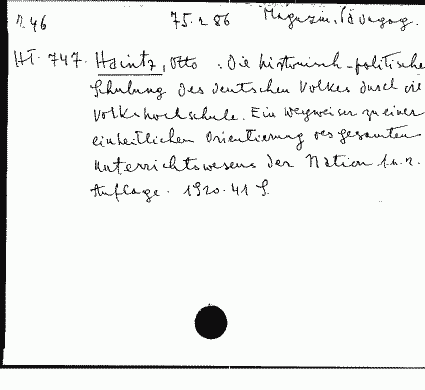 r 46 75.r 86 Magazin, Pädagog.
HI. 747. Haintz, Otto : Die historisch-politische
Schulung des deutschen Volkes durch die
Volkshochschule. Ein Wegweiser zu einer
einheitlichen Orientierung des gesamten
Unterrichtswesens der Nation 1. u. 2.
Auflage. 1920. 41 S.